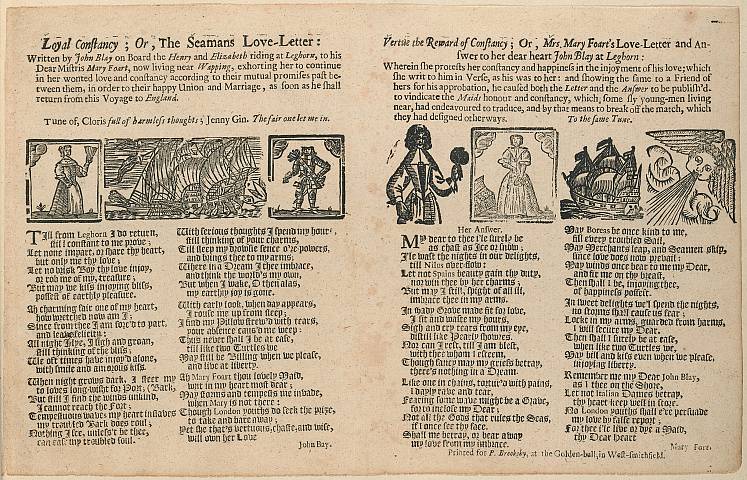 Loyal Constancy; Or, The Seamans Love-Letter:
Written by John Blay on Board the Henry and Elizabeth riding at Leghorn, to his
Dear Mistris Mary Foart, now living near Wapping, exhorting her to continue
in her wonted love and constancy according to their mutual promises past be-
tween them, in order to their happy Union and Marriage, as soon as he shall
return from this Voyage to England.
Tune of, Cloris full of harmless thoughts; Jenny Gin. The fair one let me in.
TIll from Leghorn I do return,
still constant to me prove;
Let none impart, or share thy heart,
but only me thy love;
Let no brisk Boy thy love injoy,
or rob me of my treasure;
But may we kiss injoying bliss,
possest of earthly pleasure.
Ah charming fair one of my heart,
how wretched now am I;
Since from thee I am forc'd to part,
and leave felicity:
All night I lye, I sigh and groan,
still thinking of the bliss;
We oft times have injoy'd alone,
with smile and amorous kiss.
When night grows dark, I steer my
to loves long-wisht for Port, (Bark,
But still I find the winds unkind,
I cannot reach the Fort:
Tempestuous waves my heart inslaves
my troubled Bark does roul;
Nothing I see, unless't be thee,
can ease my troubled soul.
With serious thoughts I spend my hour,
still thinking of your charms,
Till sleep my drowsie sence o're-powers,
and brings thee to my arms:
Where in a Dream I thee imbrace,
and think the world's my own,
But when I wake, O then alas,
my earthly joy is gone.
With early look, when day appears,
I rouse me up from sleep;
I find my Pillow strew'd with tears,
your absence caus'd me weep:
Thus never shall I be at ease,
till like two Turtles we
May still be Billing when we please,
and live at liberty.
Ah Mary Foart thou lovely Maid,
yet in my heart most dear;
May storms and tempests me invade,
when Mary is not there:
Though London youths do seek the prize,
to take and bare away;
Yet she that's vertuous, chaste, and wise,
will own her Love
John Blay.
Vertue the Reward of Constancy; Or, Mrs. Mary Foart's Love-Letter and An-
swer to her dear heart John Blay at Leghorn:
Wherein she protests her constancy and happiness in the injoyment of his love; which
she writ to him in Verse, as his was to her: and showing the same to a Friend of
hers for his approbation, he caused both the Letter and the Answer to be publish'd
to vindicate the Maids honour and constancy, which, some sly young-men living
near, had endeavoured to traduce, and by that means to break off the match, which
they had designed otherways. To the same Tune.
Her Answer.
MY dear to thee i'le surely be
as chast as Ice or snow;
I'le wast the nights in our delights,
till Nilos over-flow:
Let not Spain beauty gain thy duty,
nor win thee by her charms;
But may I still, spight of all ill,
imbrace thee in my arms.
In shady Grove made fit for love,
I sit and waste my hours,
Sigh and cry tears from my eye,
distill like Pearly showers.
Nor can I rest, till I am blest,
with thee whom I esteem,
Though fancy may my griefs betray,
there's nothing in a Dream.
Like one in chains, tortur'd with pains,
I dayly rave and tear,
Fearing some wave might be a Grave,
for to inclose my Dear;
Not all the Gods that rules the Seas,
if I once see thy face.
Shall me betray, or bear away
my love from my imbrace.
May Boreas be once kind to me,
fill every troubled Sail,
May Merchants leap, and Seamen skip,
since love does now prevail:
May winds once bear to me my Dear,
and fix me on thy breast,
Then shall I be, injoying thee,
of happiness possest.
In sweet delights we'l spend the nights,
no storms shall cause us fear;
Lockt in my arms, guarded from harms,
I will secure my Dear.
Then shall I surely be at ease,
when like two Turtles we,
May bill and kiss even when we please,
injoying liberty.
Remember me my Dear John Blay,
as I thee on the Shore,
Let not Italian Dames betray,
thy heart keep well in store.
No London youths shall e're perswade
my love by false report;
For thee i'le live or dye a Maid,
thy Dear heart
Mary Fort.
Printed for P. Brooksby, at the Golden-ball, in West-smithfield.